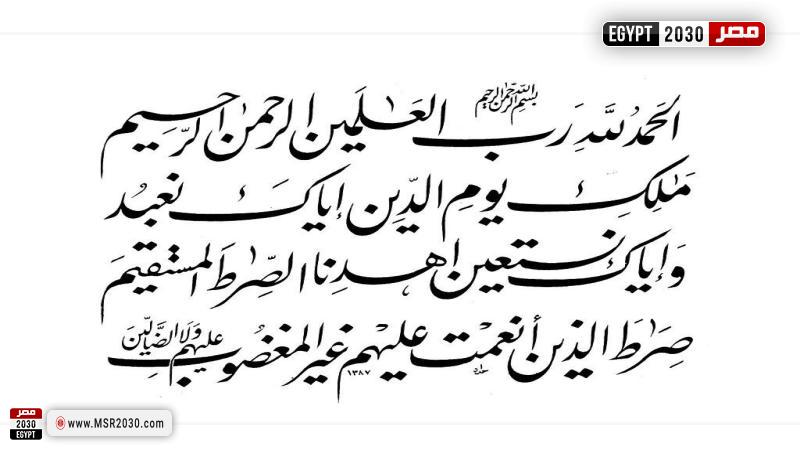 EGYPT 2030 مصر
بسم الله الرحمن الرحيم
الحمد لله رب العلمين الرحمن الرحيم
ملك يوم الدين إياك نعبد
وإياك نستعين اهدنا الصرط المستقيم
صرط الذين أنعمت عليهم غير المغضوب عليهم ولا الضالين
١٣٨٧
مصر
2030
EGYPT
www.MSR2030.com